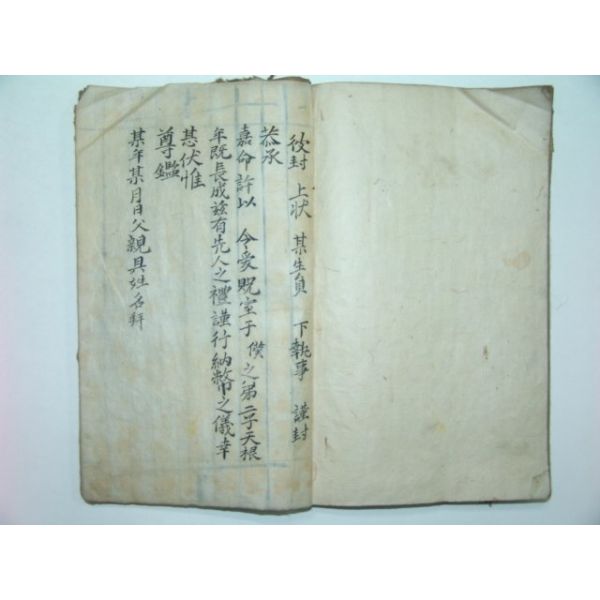 後封 上狀 某生員 下執事 謹封
恭承
嘉命許以 令愛貺室于 僕之弟二子天根
年既長成玆有先人之禮謹行納幣之儀幸
甚伏惟
尊鑑
某年某月日父親具姓名拜